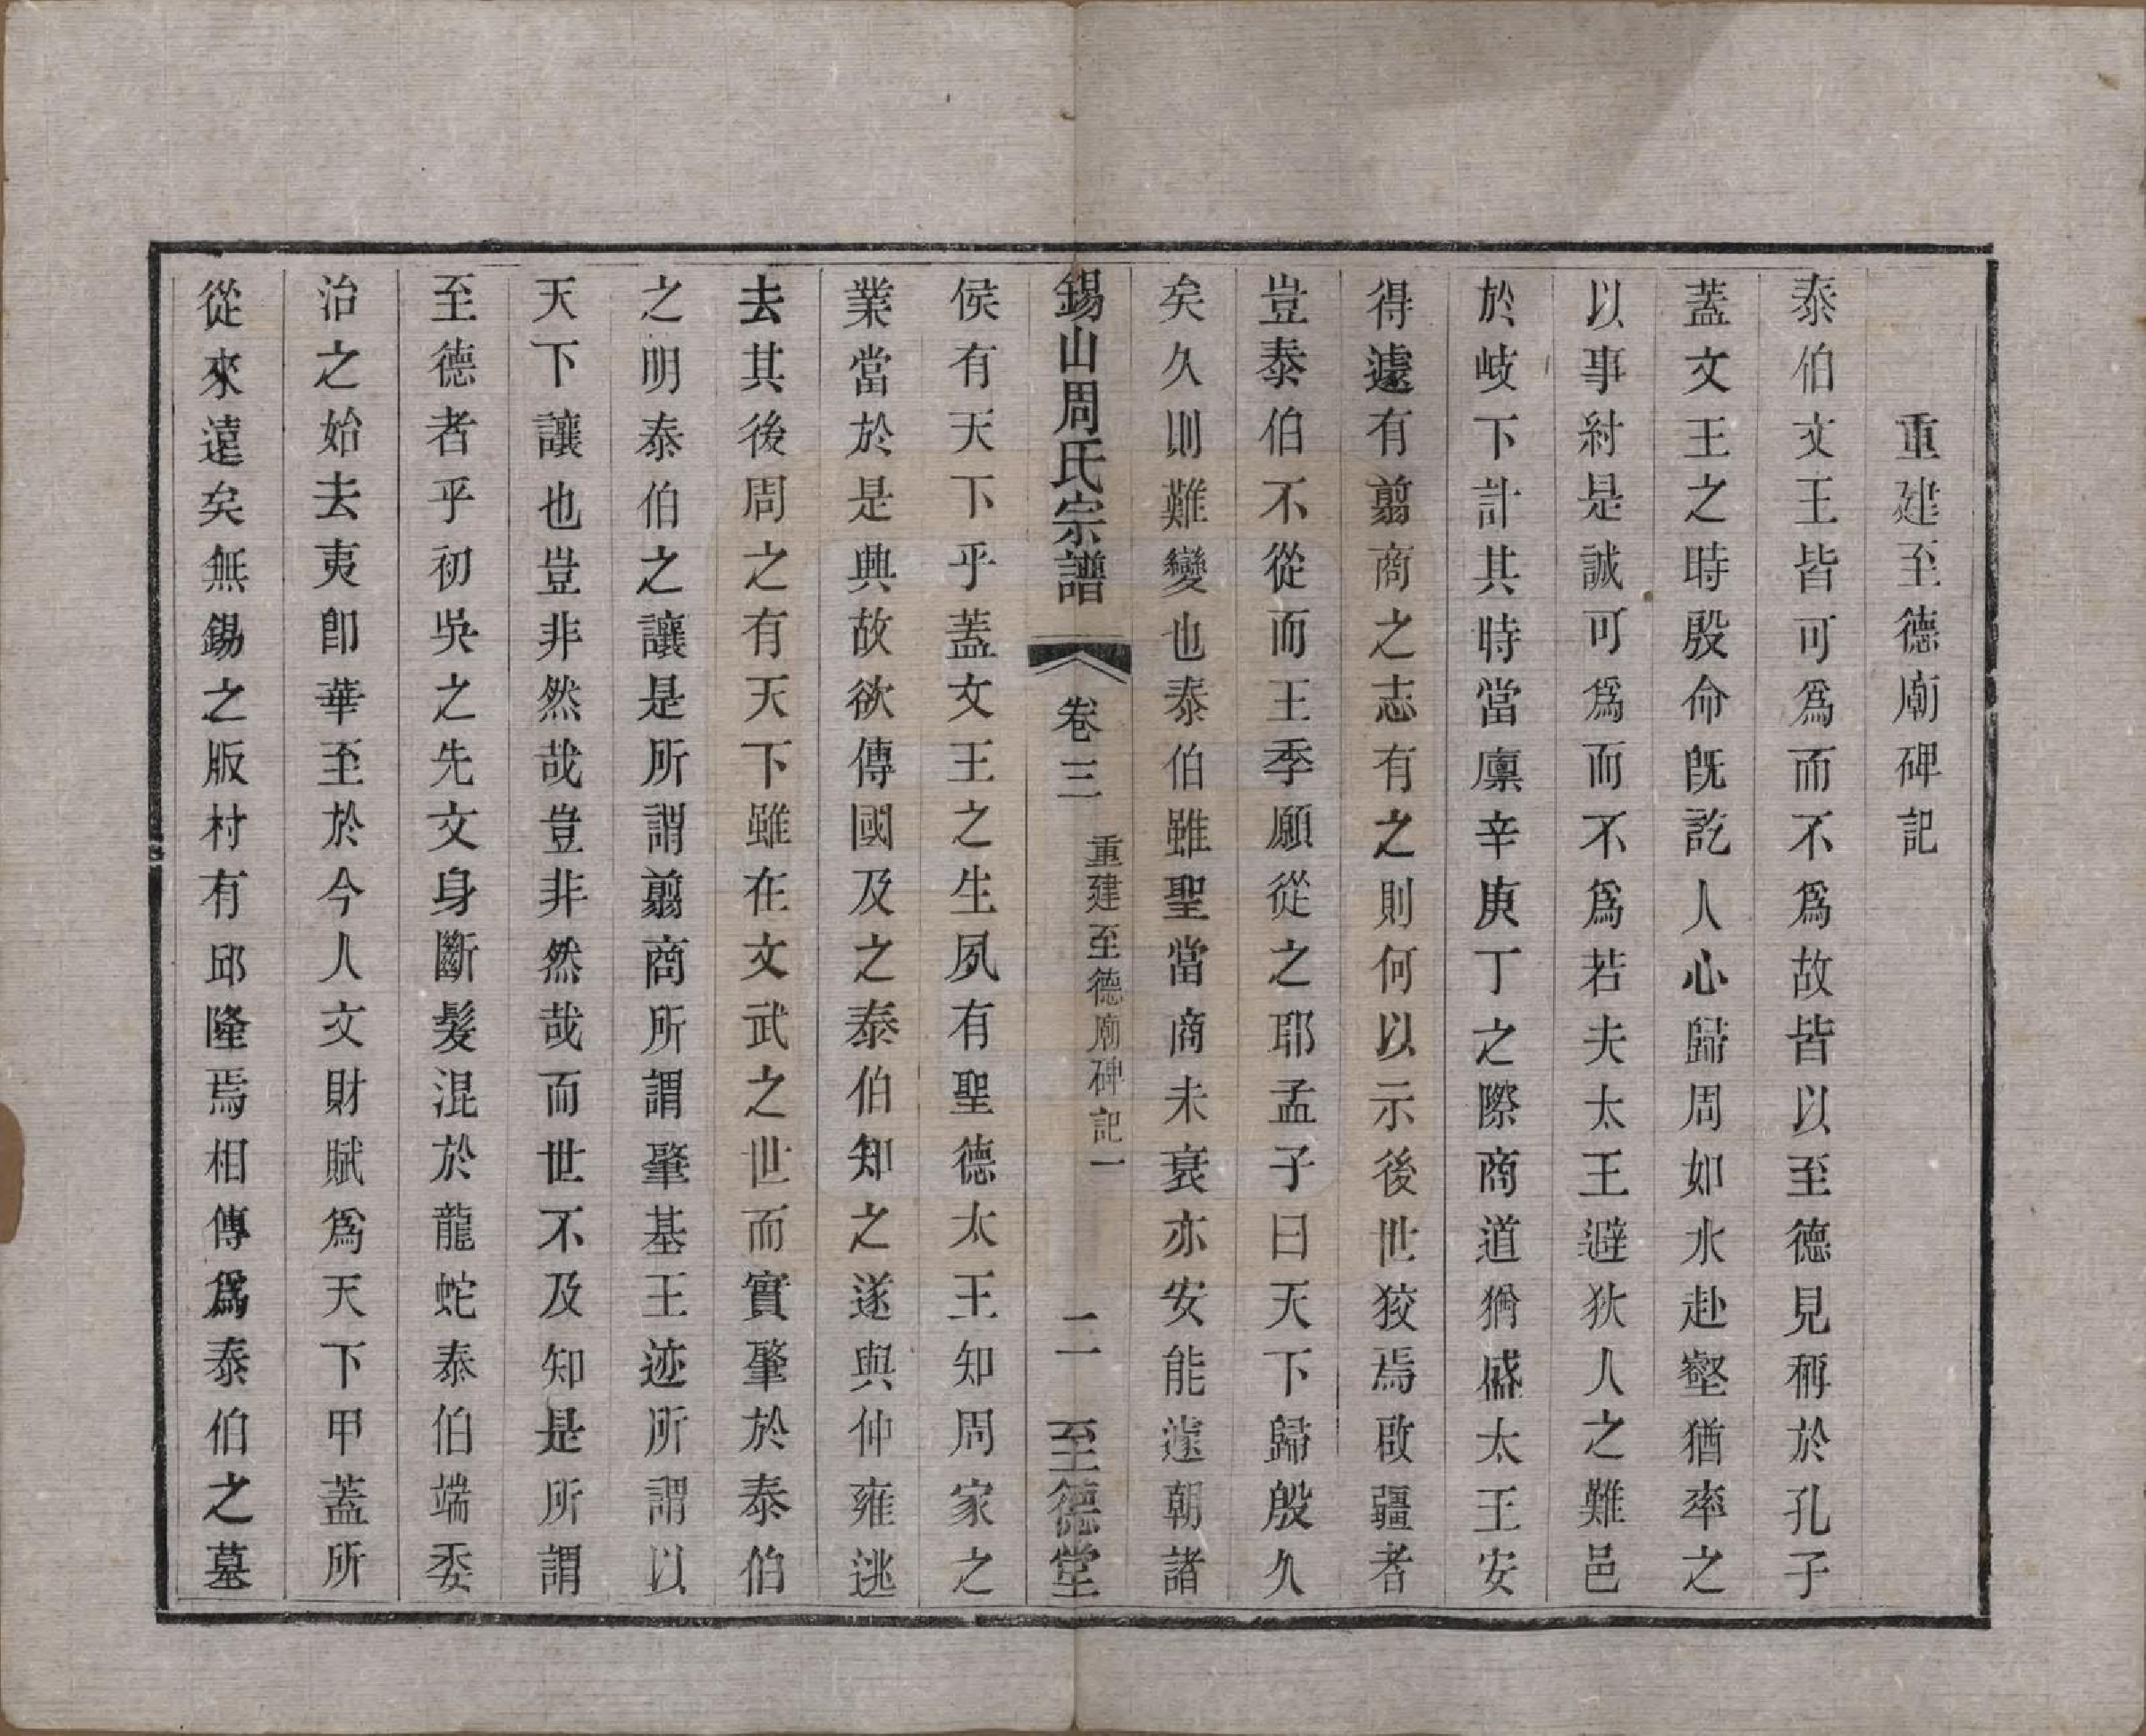 重建至德廟碑記
泰伯文王皆可爲而不爲故皆以至德見稱於孔子
蓋文王之時殷命旣訖人心歸周如水赴壑猶率之
以事紂是誠可爲而不爲若夫太王避狄人之難邑
於岐下計其時當廩辛庚丁之際商道猶盛太王安
得遽有翦商之志有之則何以示後世狡焉啟疆者
豈泰伯不從而王季願從之耶孟子曰天下歸殷久
矣久則難變也泰伯雖聖當商未衰亦安能遽朝諸
錫山周氏宗譜 卷三 重建至德廟碑記一 二 至德堂
侯有天下乎蓋文王之生夙有聖德太王知周家之
業當於是興故欲傳國及之泰伯知之遂與仲雍逃
去其後周之有天下雖在文武之世而實肇於泰伯
之明泰伯之讓是所謂翦商所謂肇基王迹所謂以
天下讓也豈非然哉豈非然哉而世不及知是所謂
至德者乎初吳之先文身斷髮混於龍蛇泰伯端委
治之始去夷卽華至於今人文財賦爲天下甲蓋所
從來遠矣無錫之版村有邱隆焉相傳爲泰伯之墓